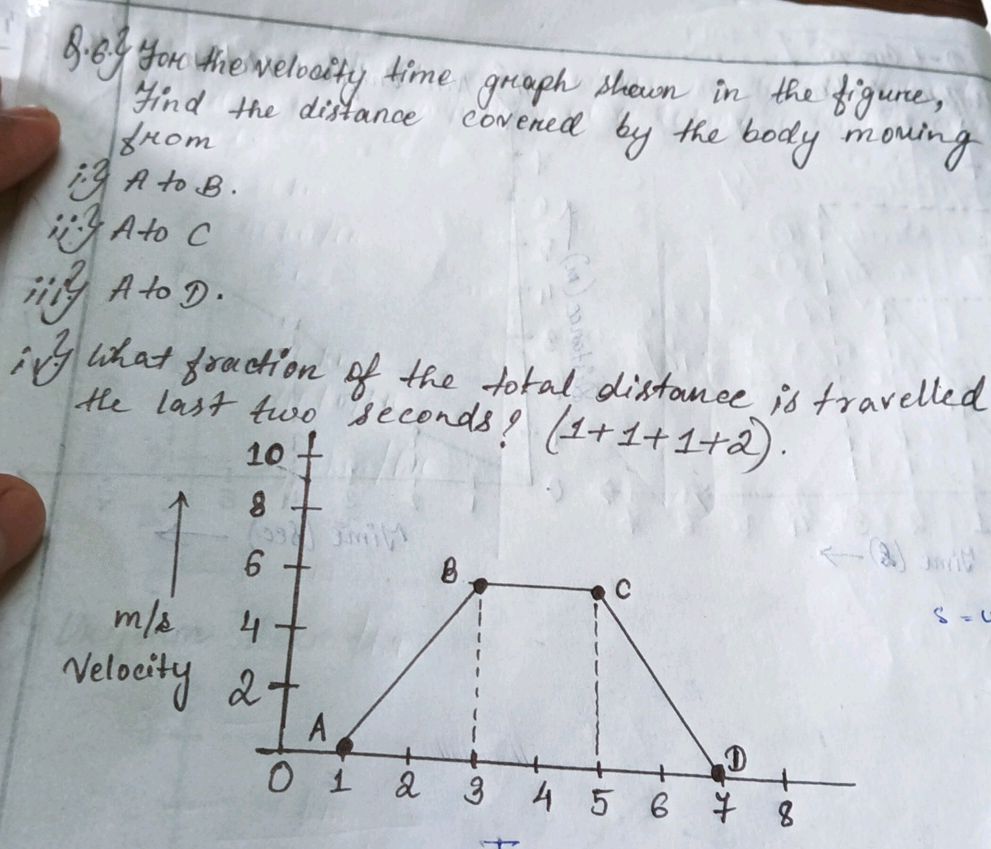 Q.6.} For the velocity time graph shown in the figure,
Find the distance covered by the body moving
from
i.} A to B.
ii.} A to C
iii} A to D.
iv} What fraction of the total distance is travelled
the last two seconds? (1+1+1+2).
10
8
6
B
C
m/s
4
Velocity
2
A
D
0 1 2 3 4 5 6 7 8